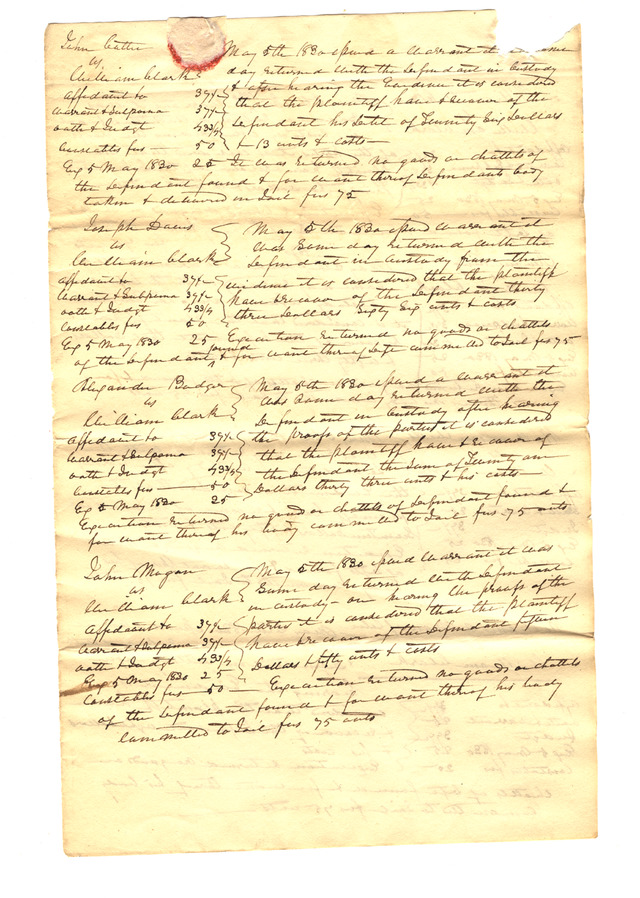 John
vs
William Clark
Affidavit to 37½
Warrant & Subpoena 37½
oath & Judgt 43¾
Constables fees — 50
Exn 5 May 1830 25
May 5th 1830 issued a warrant it
day returned with the Defendant in Custody
& after hearing the Evidence it is considered
that the plaintiff have & recover of the
Defendant his Debt of Twenty Six Dollars
& 13 cents & costs —
It was returned no goods or chattels of
the Defendant found & for want thereof Defendants body
taken & delivered in Jail fees 75
Joseph Davis
vs
William Clark
Affidavit to 37½
Warrant & Subpoena 37½
oath & Judgt 43¾
Constables fees 50
Ex 5 May 1830 25
May 5th 1830 issued Warrant it
was Same day returned with the
Defendant in custody from the
evidence it is considered that the plaintiff
have & recover of the Defendant thirty
three Dollars Sixty Six cents & costs
Execution returned no goods or chattels
of the Defendant found & for want thereof Deft committed to Jail fees 75
Alexander Badger
vs
William Clark
Affidavit to 37½
Warrant & Subpoena 37½
oath & Judgt 43¾
Constables fees — 50
Ex 5 May 1830 25
May 5th 1830 issued a Warrant it
was Same day returned with the
Defendant in custody after hearing
the proofs of the parties it is considered
that the plaintiff have & recover of
the Defendant the Sum of Twenty one
Dollars thirty three cents & his costs —
Execution returned no goods or chattels of Defendant found &
for want thereof his body committed to Jail fees 75 cents
John Mogan
vs
William Clark
Affidavit to 37½
Warrant & Subpoena 37½
oath & Judgt 43¾
Ex 5 May 1830 25
Constables fees 50 —
May 5th 1830 issued Warrant it was
Same day returned with Defendant
in custody — on hearing the proofs of the
parties it is considered that the plaintiff
have & recover of the Defendant fifteen
Dollars & fifty cents & costs
Execution returned no goods or chattels
of the Defendant found & for want thereof his body
Committed to Jail fees 75 cents